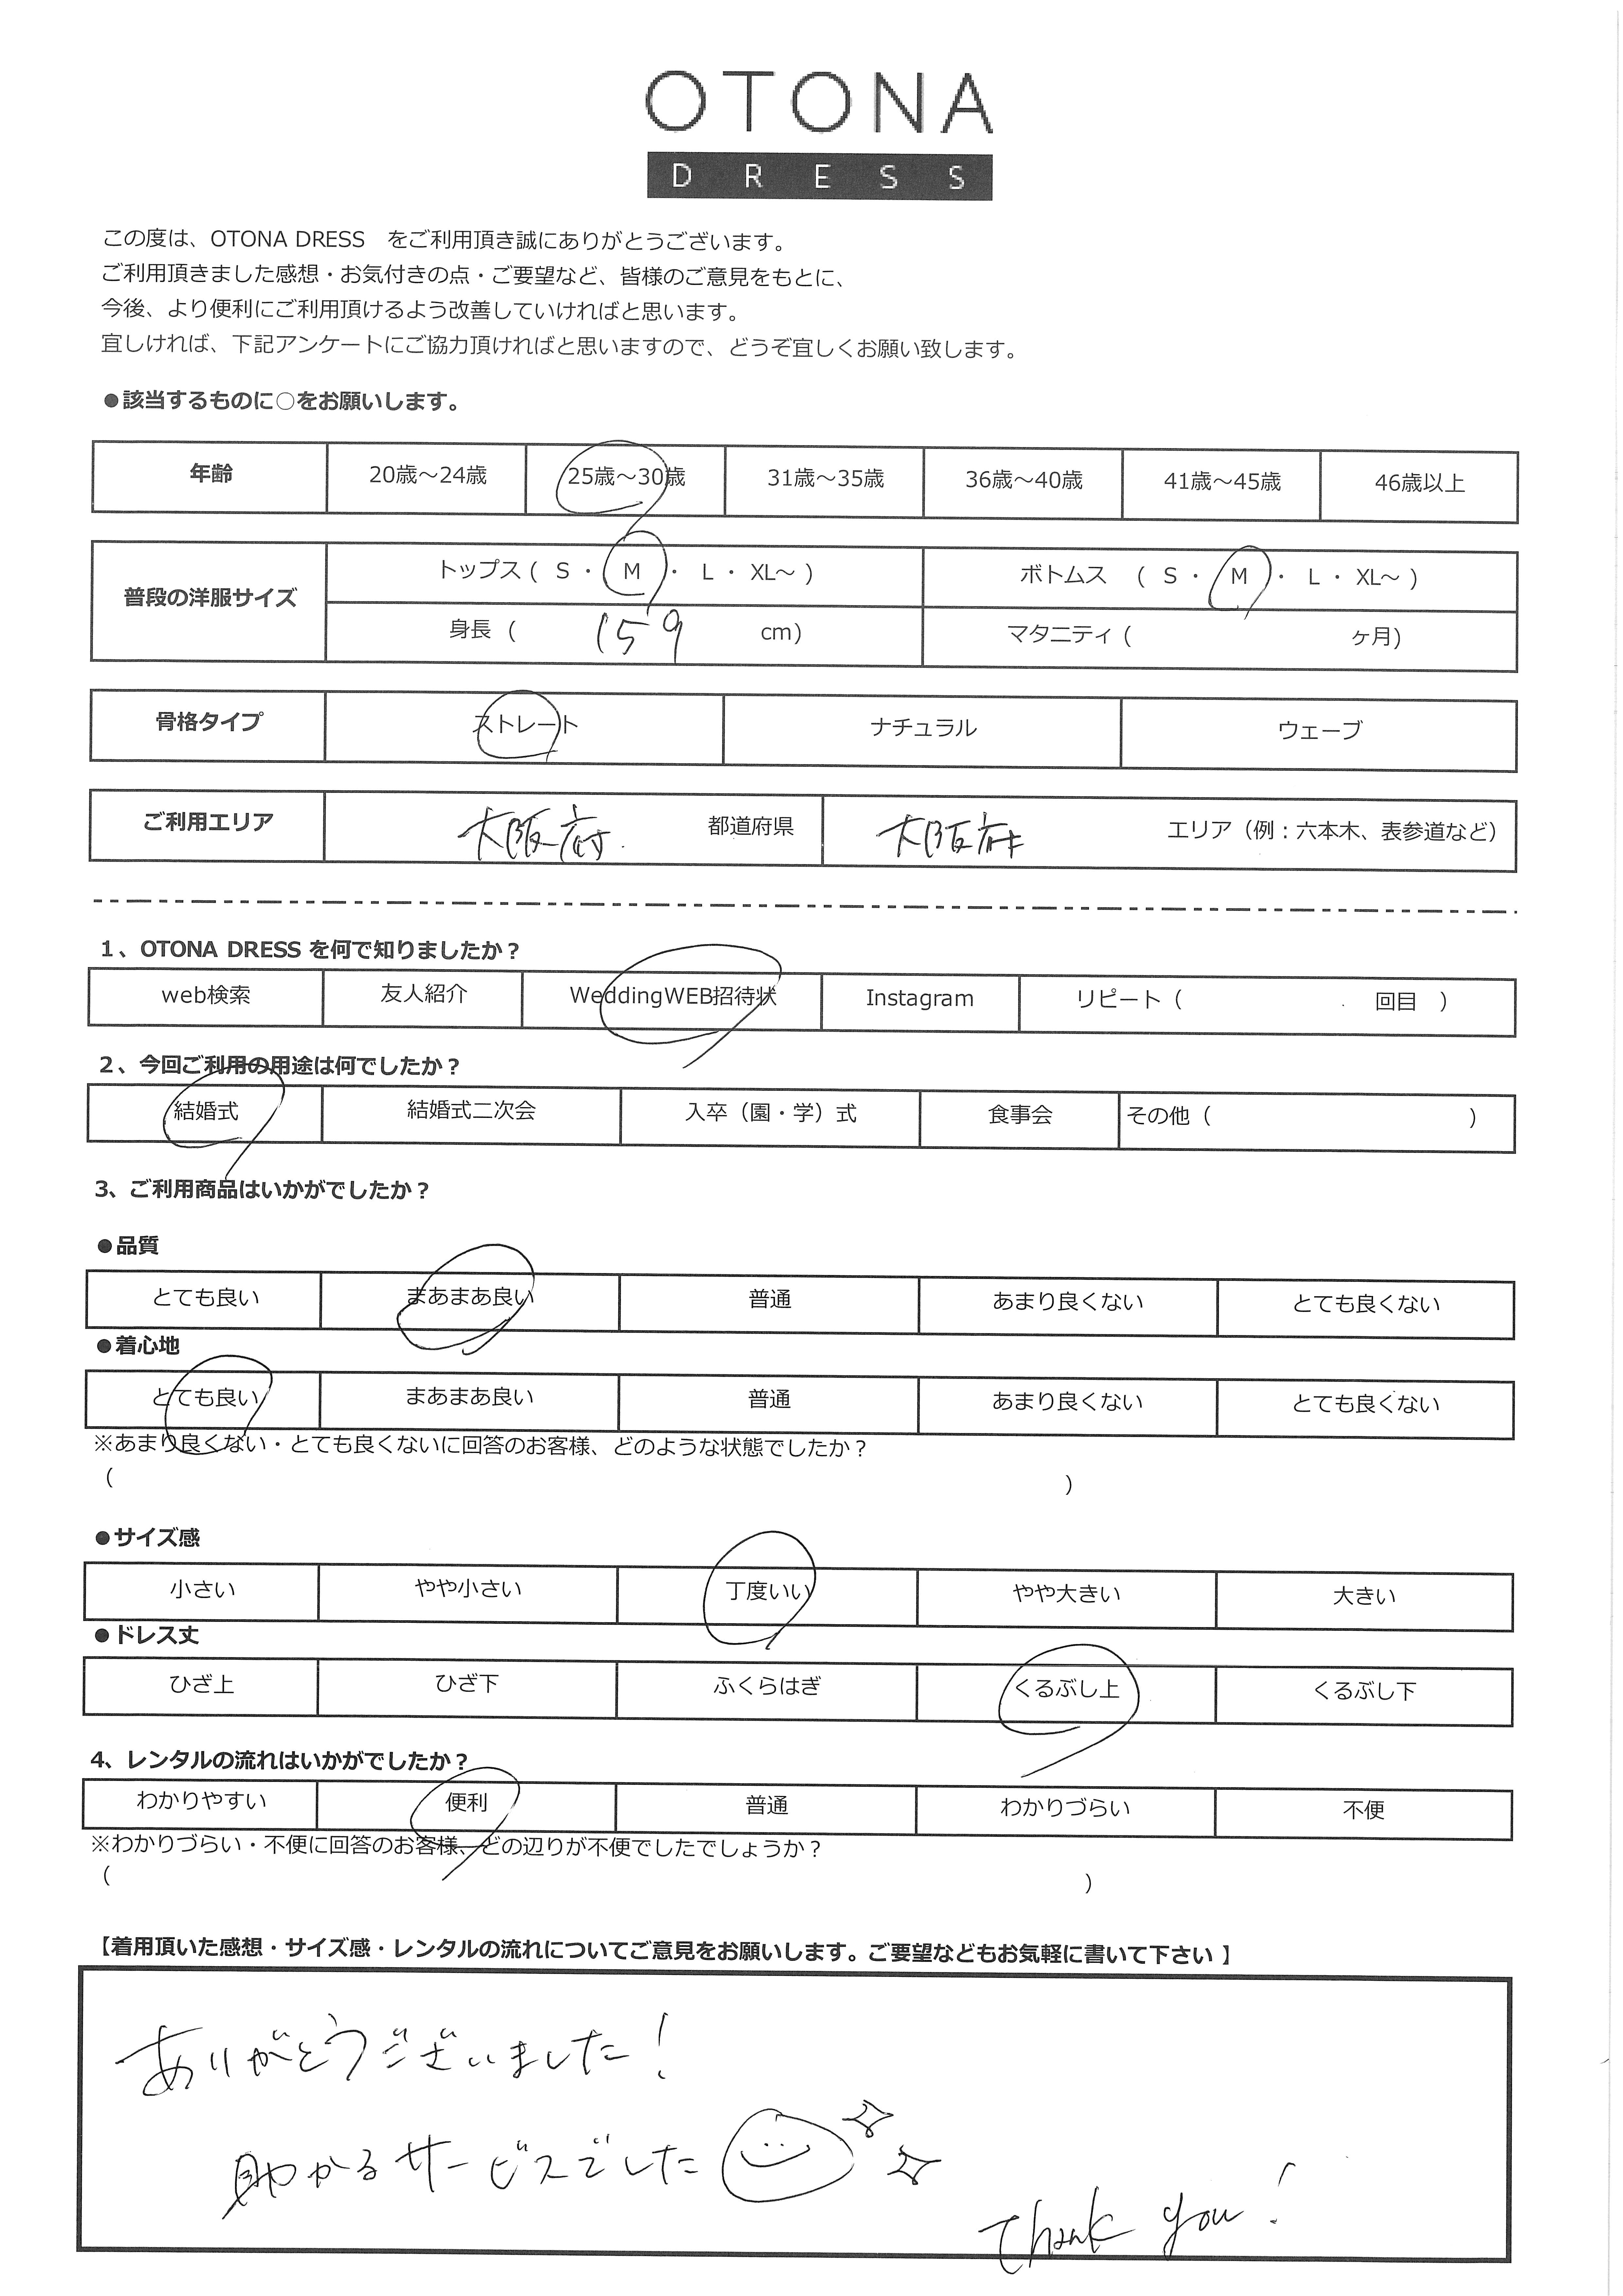 OTONA
DRESS
この度は、OTONA DRESS をご利用頂き誠にありがとうございます。
ご利用頂きました感想・お気付きの点・ご要望など、皆様のご意見をもとに、
今後、より便利にご利用頂けるよう改善していければと思います。
宜しければ、下記アンケートにご協力頂ければと思いますので、どうぞ宜しくお願い致します。
●該当するものに○をお願いします。
年齢 20歳～24歳 25歳～30歳 31歳～35歳 36歳～40歳 41歳～45歳 46歳以上
普段の洋服サイズ トップス ( S ・ M ・ L ・ XL～ ) ボトムス ( S ・ M ・ L ・ XL～ )
身長 ( 159 cm) マタニティ ( ヶ月)
骨格タイプ ストレート ナチュラル ウェーブ
ご利用エリア 大阪府 都道府県 大阪府 エリア（例：六本木、表参道など）
1、OTONA DRESS を何で知りましたか？
web検索 友人紹介 WeddingWEB招待状 Instagram リピート（ 回目 ）
2、今回ご利用の用途は何でしたか？
結婚式 結婚式二次会 入卒（園・学）式 食事会 その他（ ）
3、ご利用商品はいかがでしたか？
●品質
とても良い まあまあ良い 普通 あまり良くない とても良くない
●着心地
とても良い まあまあ良い 普通 あまり良くない とても良くない
※あまり良くない・とても良くないに回答のお客様、どのような状態でしたか？
（ ）
●サイズ感
小さい やや小さい 丁度いい やや大きい 大きい
●ドレス丈
ひざ上 ひざ下 ふくらはぎ くるぶし上 くるぶし下
4、レンタルの流れはいかがでしたか？
わかりやすい 便利 普通 わかりづらい 不便
※わかりづらい・不便に回答のお客様、どの辺りが不便でしたでしょうか？
（ ）
【着用頂いた感想・サイズ感・レンタルの流れについてご意見をお願いします。ご要望などもお気軽に書いて下さい 】
ありがとうございました！
助かるサービスでした
Thank you!